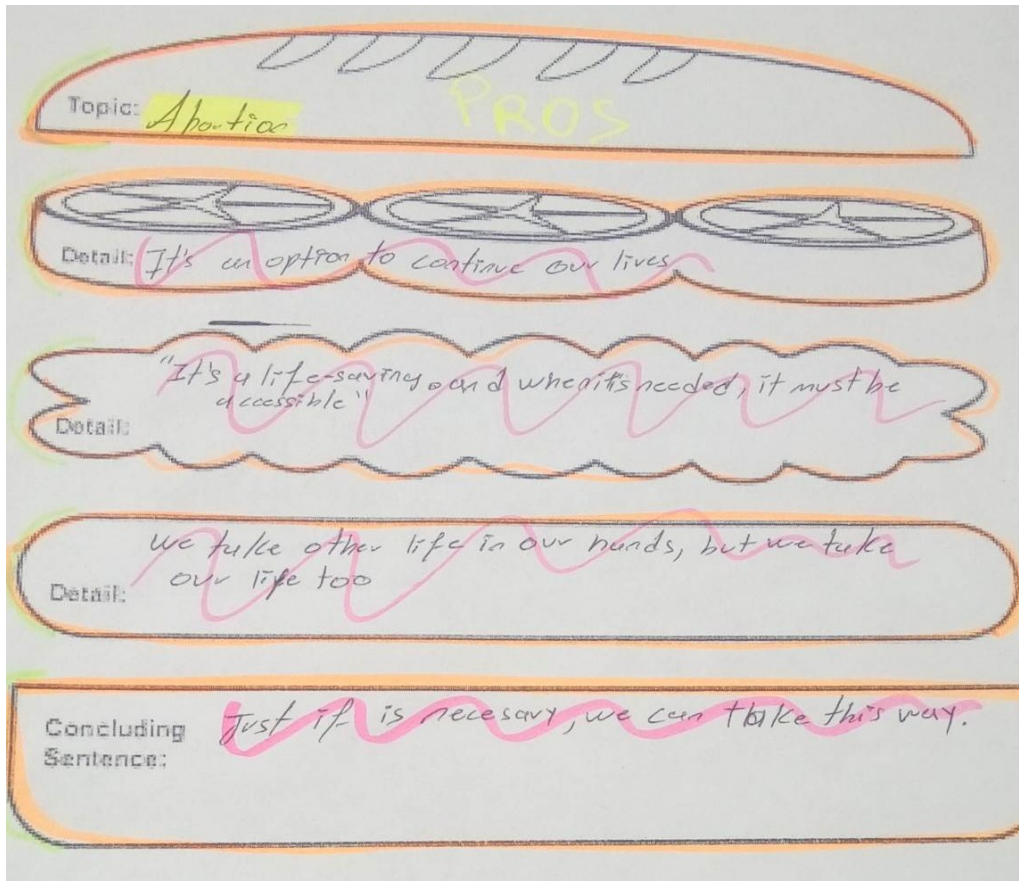 Topic: Abortion
PROS
Detail: It's an option to continue our lives
"It's a life-saving, and when it's needed, it must be
accessible"
Detail:
We take other life in our hands, but we take
our life too
Detail:
Concluding Just if is necesary, we can take this way.
Sentence: